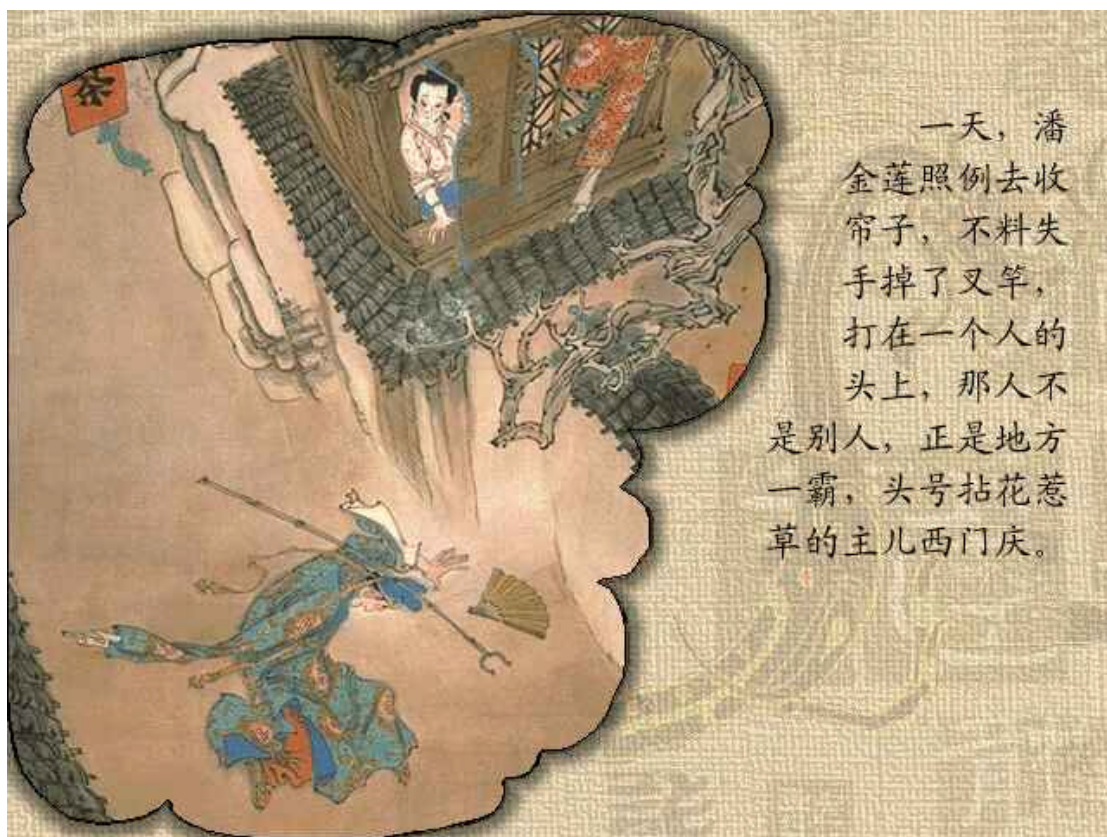 茶
一天，潘
金莲照例去收
帘子，不料失
手掉了叉竿，
打在一个人的
头上，那人不
是别人，正是地方
一霸，头号拈花惹
草的主儿西门庆。